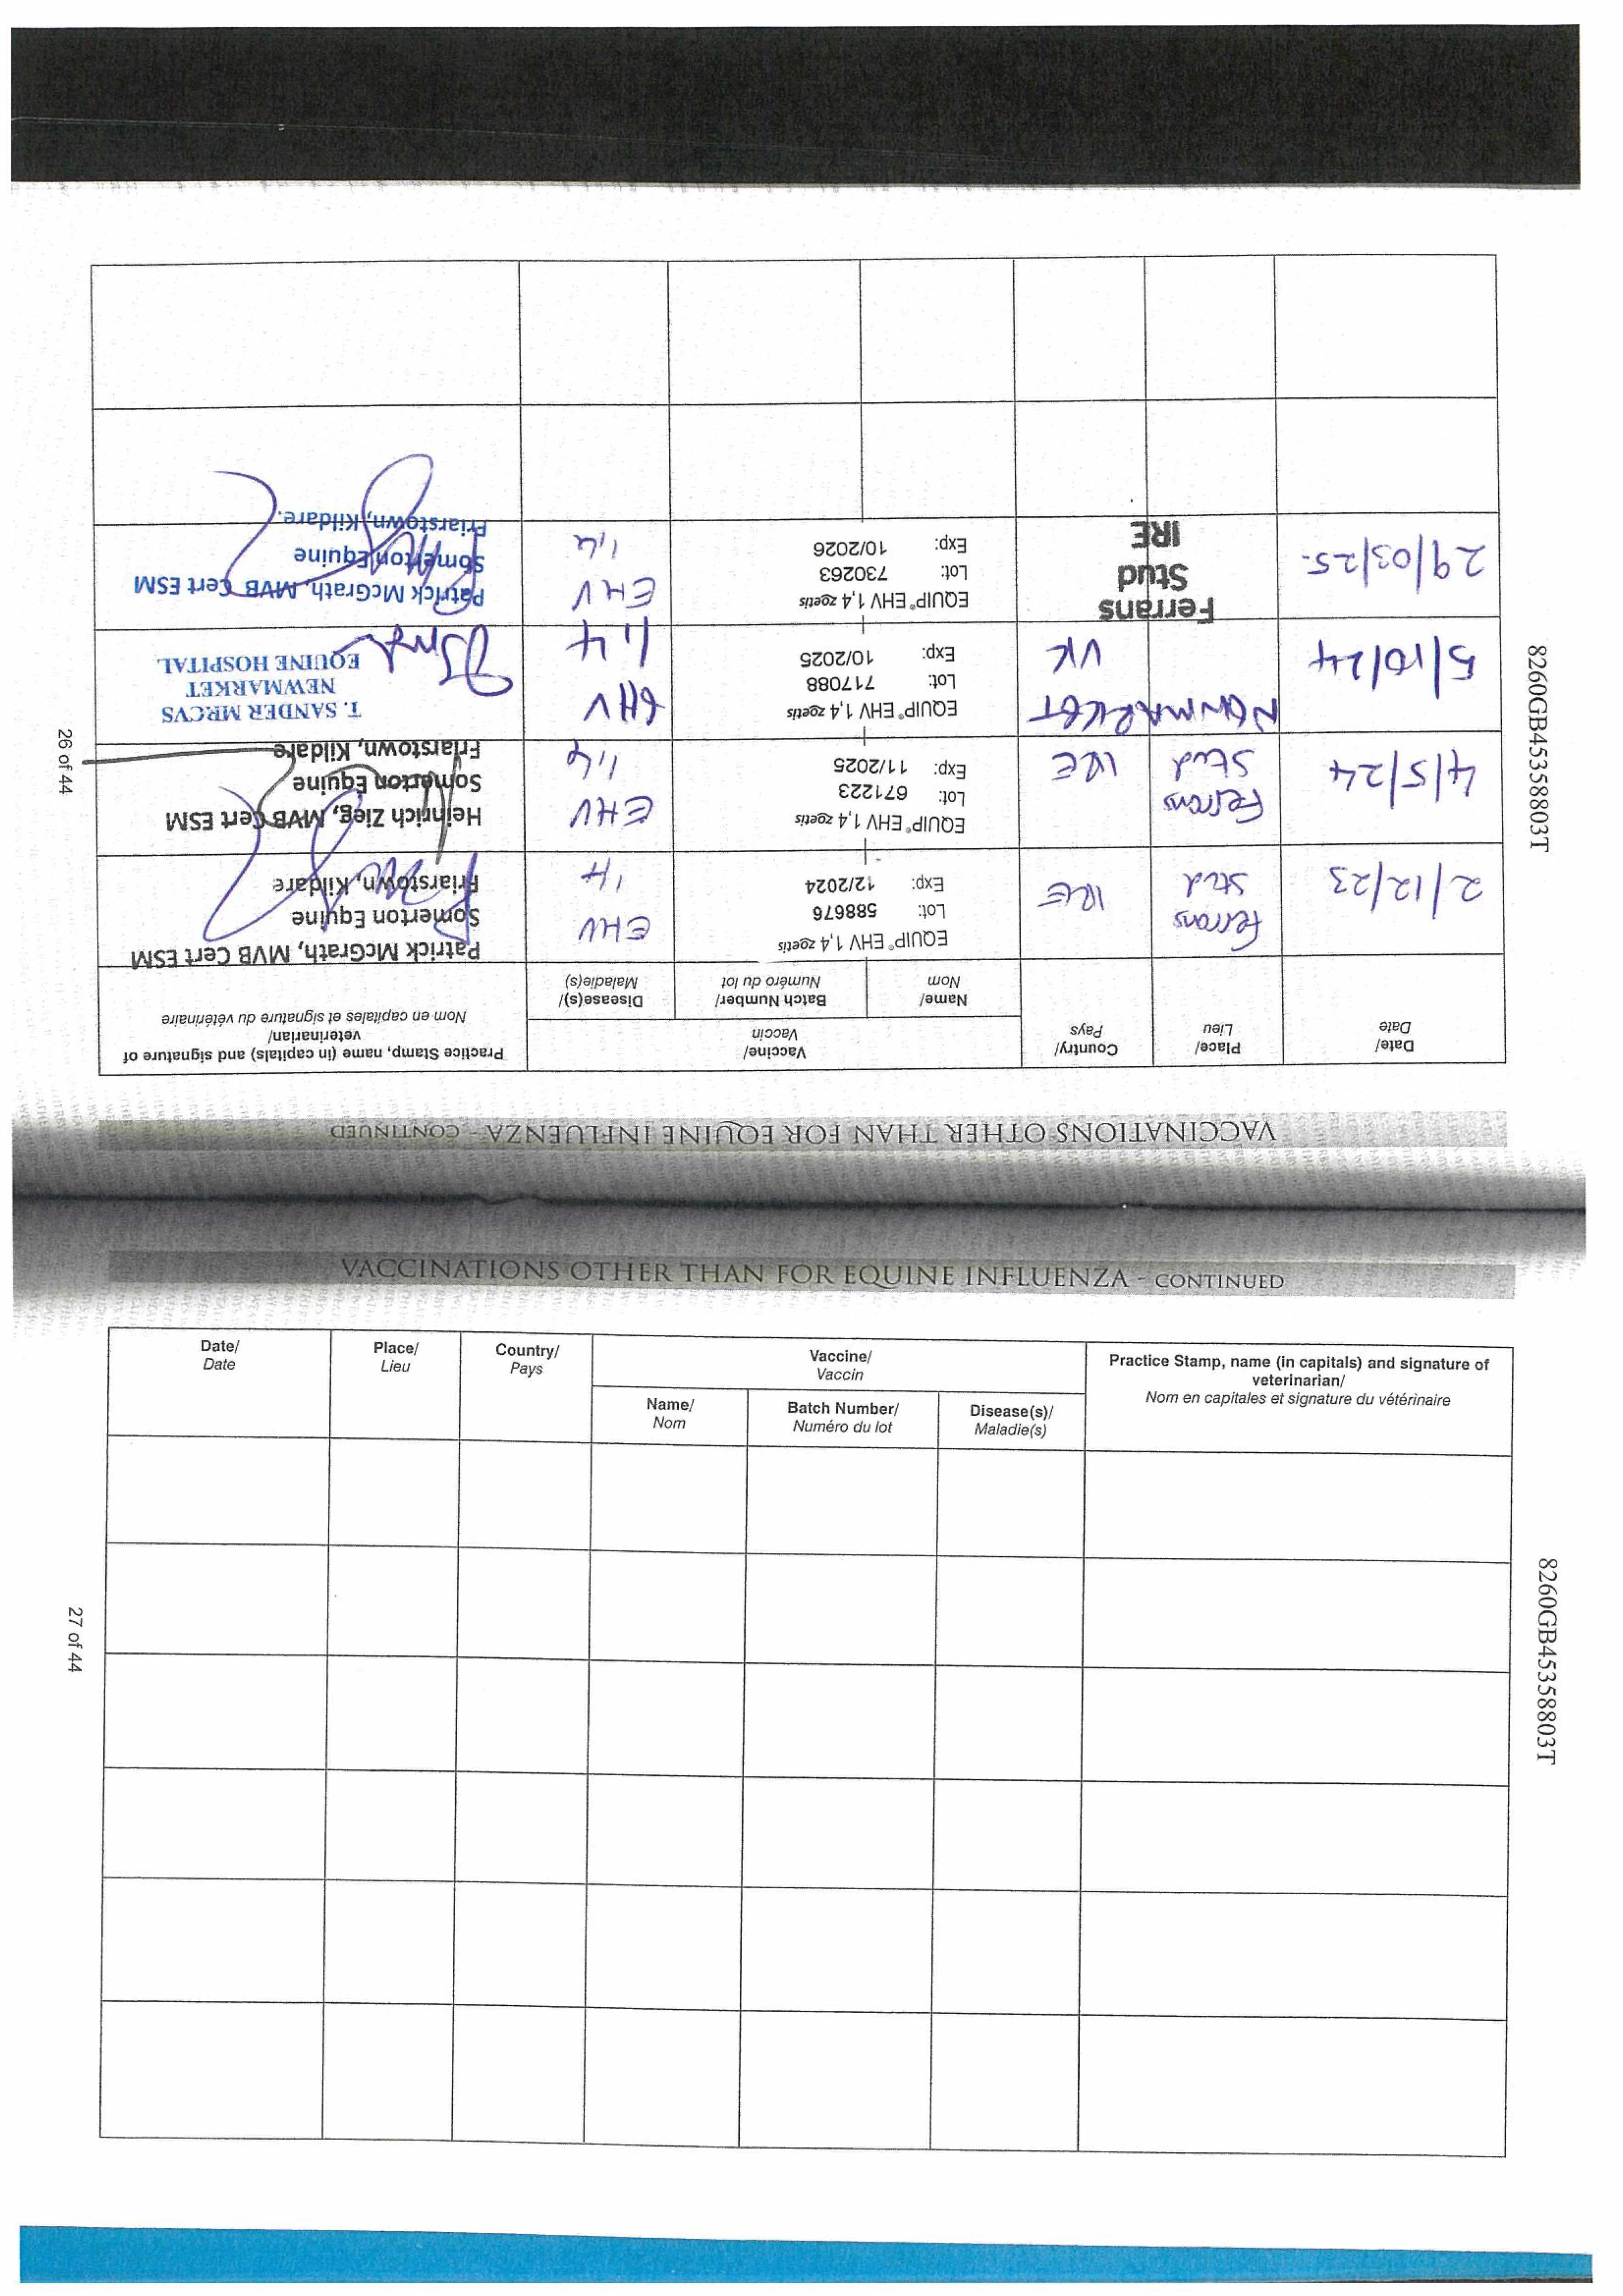 VACCINATIONS OTHER THAN FOR EQUINE INFLUENZA - CONTINUED
Date/
Date
Place/
Lieu
Country/
Pays
Vaccine/
Vaccin
Name/
Nom
Batch Number/
Numéro du lot
Disease(s)/
Maladie(s)
Practice Stamp, name (in capitals) and signature of
veterinarian/
Nom en capitales et signature du vétérinaire
2/12/23
Ferrans
Stud
IRE
EQUIP® EHV 1,4 zoetis
Lot: 588676
Exp: 12/2024
EHV
1,4
Patrick McGrath, MVB Cert ESM
Somerton Equine
Friarstown, Kildare
4/5/24
Ferrans
Stud
IRE
EQUIP® EHV 1,4 zoetis
Lot: 671223
Exp: 11/2025
EHV
1,4
Heinrich Zieg, MVB Cert ESM
Somerton Equine
Friarstown, Kildare
5/10/24
NEWMARKET
UK
EQUIP® EHV 1,4 zoetis
Lot: 717088
Exp: 10/2025
EHV
1,4
T. SANDER MRCVS
NEWMARKET
EQUINE HOSPITAL
29/03/25.
Ferrans
Stud
IRE
EQUIP® EHV 1,4 zoetis
Lot: 730263
Exp: 10/2026
EHV
1,4
Patrick McGrath, MVB Cert ESM
Somerton Equine
Friarstown, Kildare.
26 of 44
8260GB45358803T
VACCINATIONS OTHER THAN FOR EQUINE INFLUENZA - CONTINUED
Date/
Date
Place/
Lieu
Country/
Pays
Vaccine/
Vaccin
Name/
Nom
Batch Number/
Numéro du lot
Disease(s)/
Maladie(s)
Practice Stamp, name (in capitals) and signature of
veterinarian/
Nom en capitales et signature du vétérinaire
27 of 44
8260GB45358803T